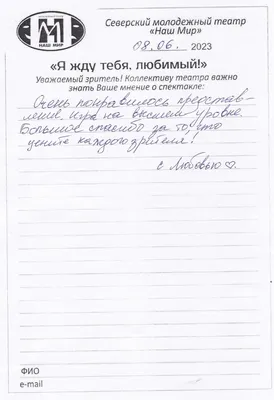 М
НАШ МИР
Северский молодежный театр
«Наш Мир»
08.06. 2023
«Я жду тебя, любимый!»
Уважаемый зритель! Коллективу театра важно
знать Ваше мнение о спектакле:
Очень понравилось представ-
ление, игра на высшем уровне.
Большое спасибо за то, что
цените каждого зрителя!
с Любовью ♡.
ФИО
e-mail